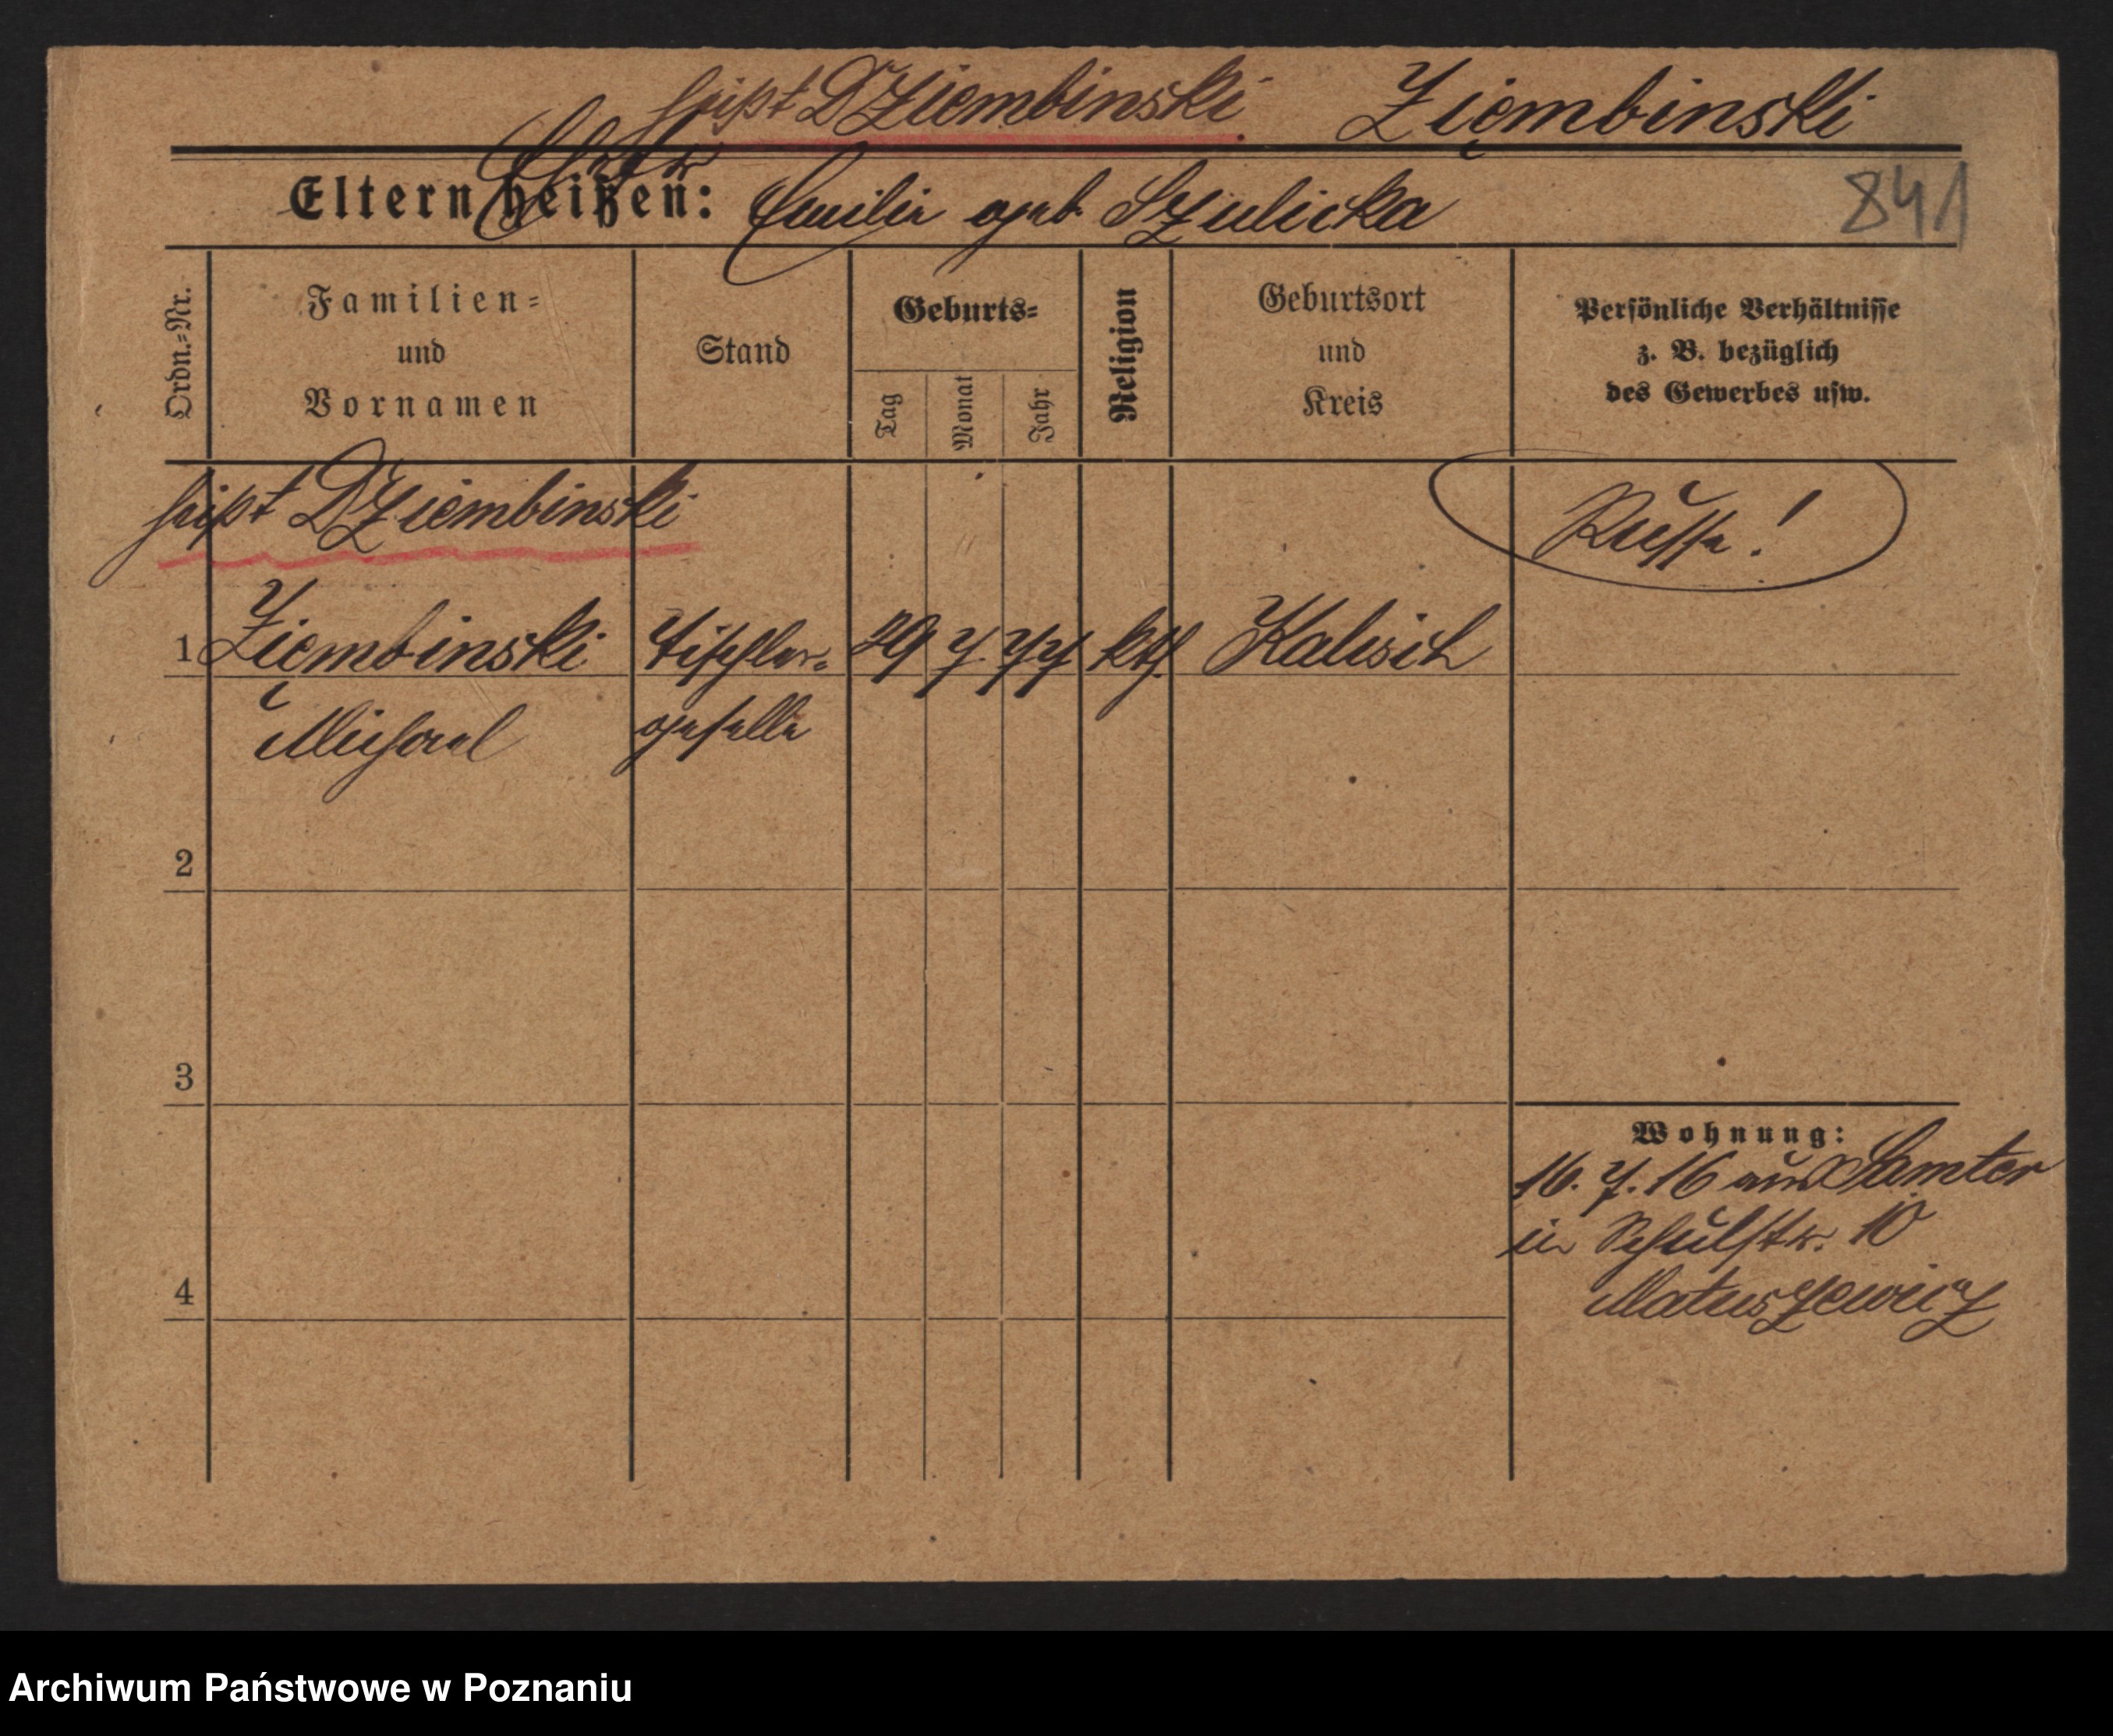 heißt Dziembinski. Ziembinski
Eltern heißen: Emilie geb. Szulicka
841
Ordn.-Nr.
Familien-
und
Vornamen
Stand
Geburts-
Tag
Monat
Jahr
Religion
Geburtsort
und
Kreis
Persönliche Verhältnisse
z. B. bezüglich
des Gewerbes usw.
heißt Dziembinski
Russe!
1 Ziembinski Tischler- 29 7. 77 kth. Kalisch
Michael geselle
2
3
4
Wohnung:
16. 7. 16 aus Samter
in Schulstr. 10
Matuszewicz
Archiwum Państwowe w Poznaniu